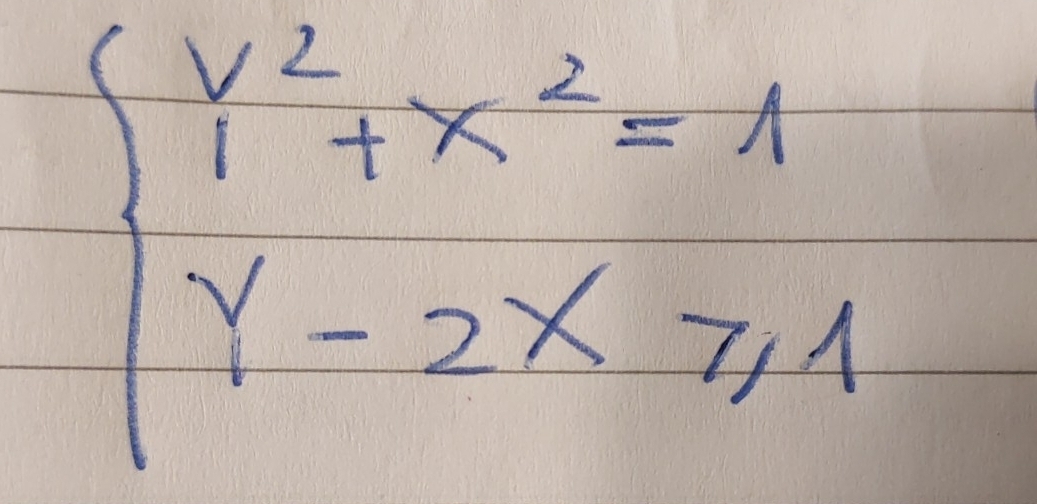 Y² + X² = 1
Y - 2X ⩾ 1